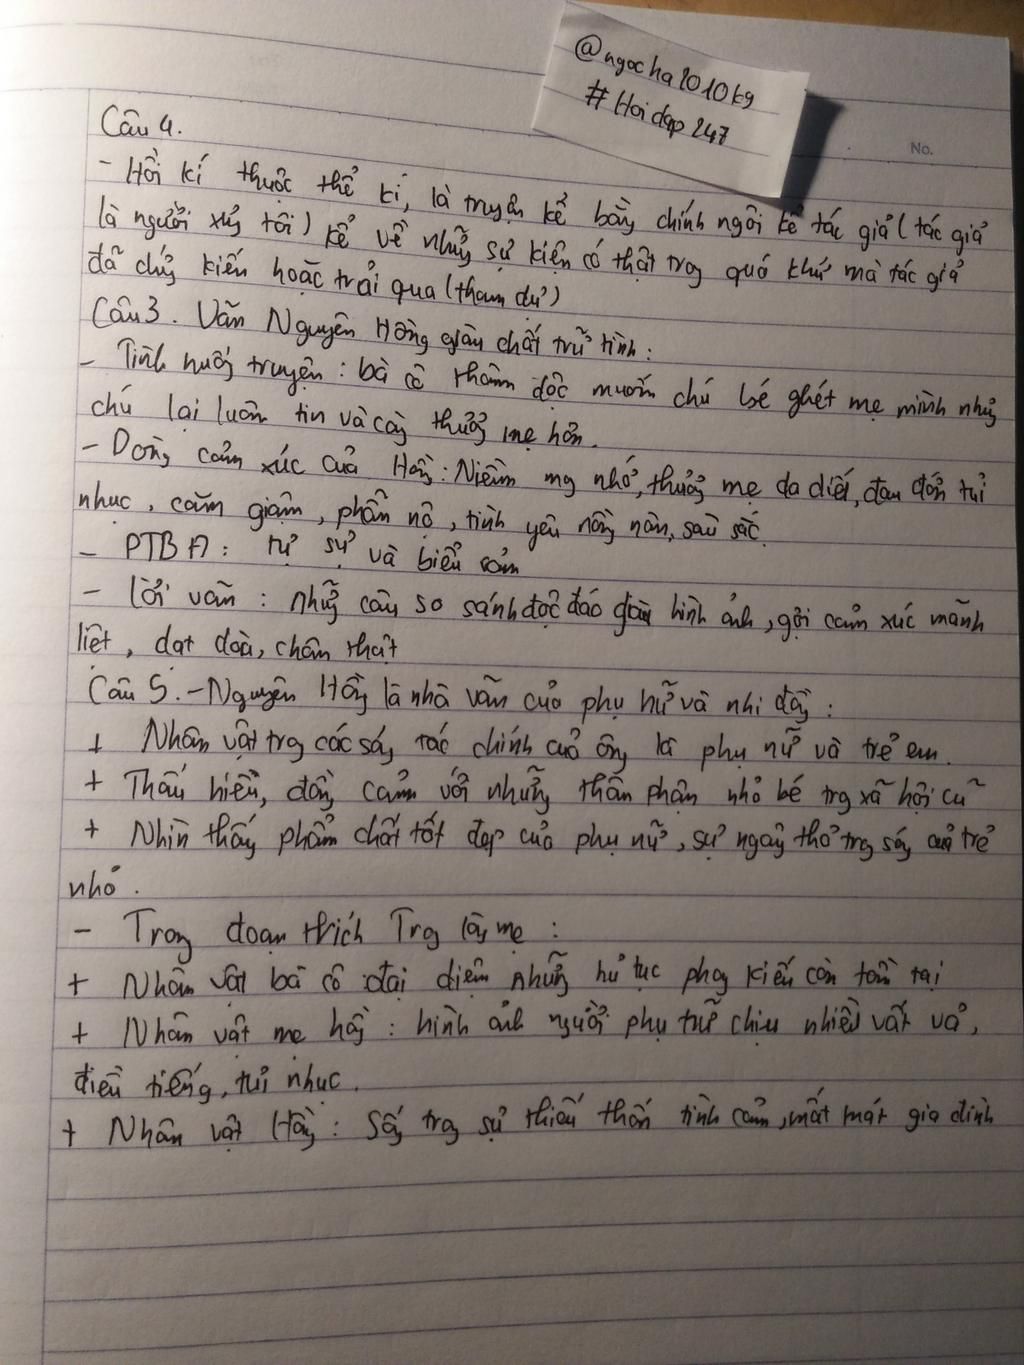 @ngocha2010kg
#Hoidap247
No.
Câu 4.
- Hồi kí thuộc thể kí, là truyện kể bằg chính ngôi kể tác giả (tác giả
là người xưg tôi) kể về nhữg sự kiện có thật trog quá khứ mà tác giả
đã chứg kiến hoặc trải qua (tham dự)
Câu 3. Văn Nguyên Hồng giàu chất trữ tình:
- Tình huốg truyện: bà cô thâm độc muốn chú bé ghét mẹ mình nhưg
chú lại luôn tin và càg thươg mẹ hơn.
- Dòng cảm xúc của Hồg: Niềm mg nhớ, thươg mẹ da diết, đau đớn tủi
nhục, căm giận, phẫn nộ, tình yêu nồg nàn, sâu sắc.
- PTBĐ: tự sự và biểu cảm
- Lời văn: nhữg câu so sánh độc đáo giàu hình ảnh, gợi cảm xúc mãnh
liệt, dạt dào, chân thật
Câu 5. - Nguyên Hồg là nhà văn của phụ nữ và nhi đồg:
+ Nhân vật trg các ság tác chính cuả ôg là phụ nữ và trẻ em.
+ Thấu hiểu, đồg cảm với nhữg thân phận nhỏ bé trg xã hội cũ
+ Nhìn thấy phẩm chất tốt đẹp của phụ nữ, sự ngây thơ trg ság cuả trẻ
nhỏ.
- Trog đoạn thích Trg lòg mẹ:
+ Nhân vật bà cô đại diện nhữg hủ tục phog kiến còn tồn tại
+ Nhân vật mẹ hồg: hình ảnh người phụ tữ chịu nhiều vất vả,
điều tiếng, tủi nhục.
+ Nhân vật Hồg: Sốg trg sự thiếu thốn tình cảm, mất mát gia đình